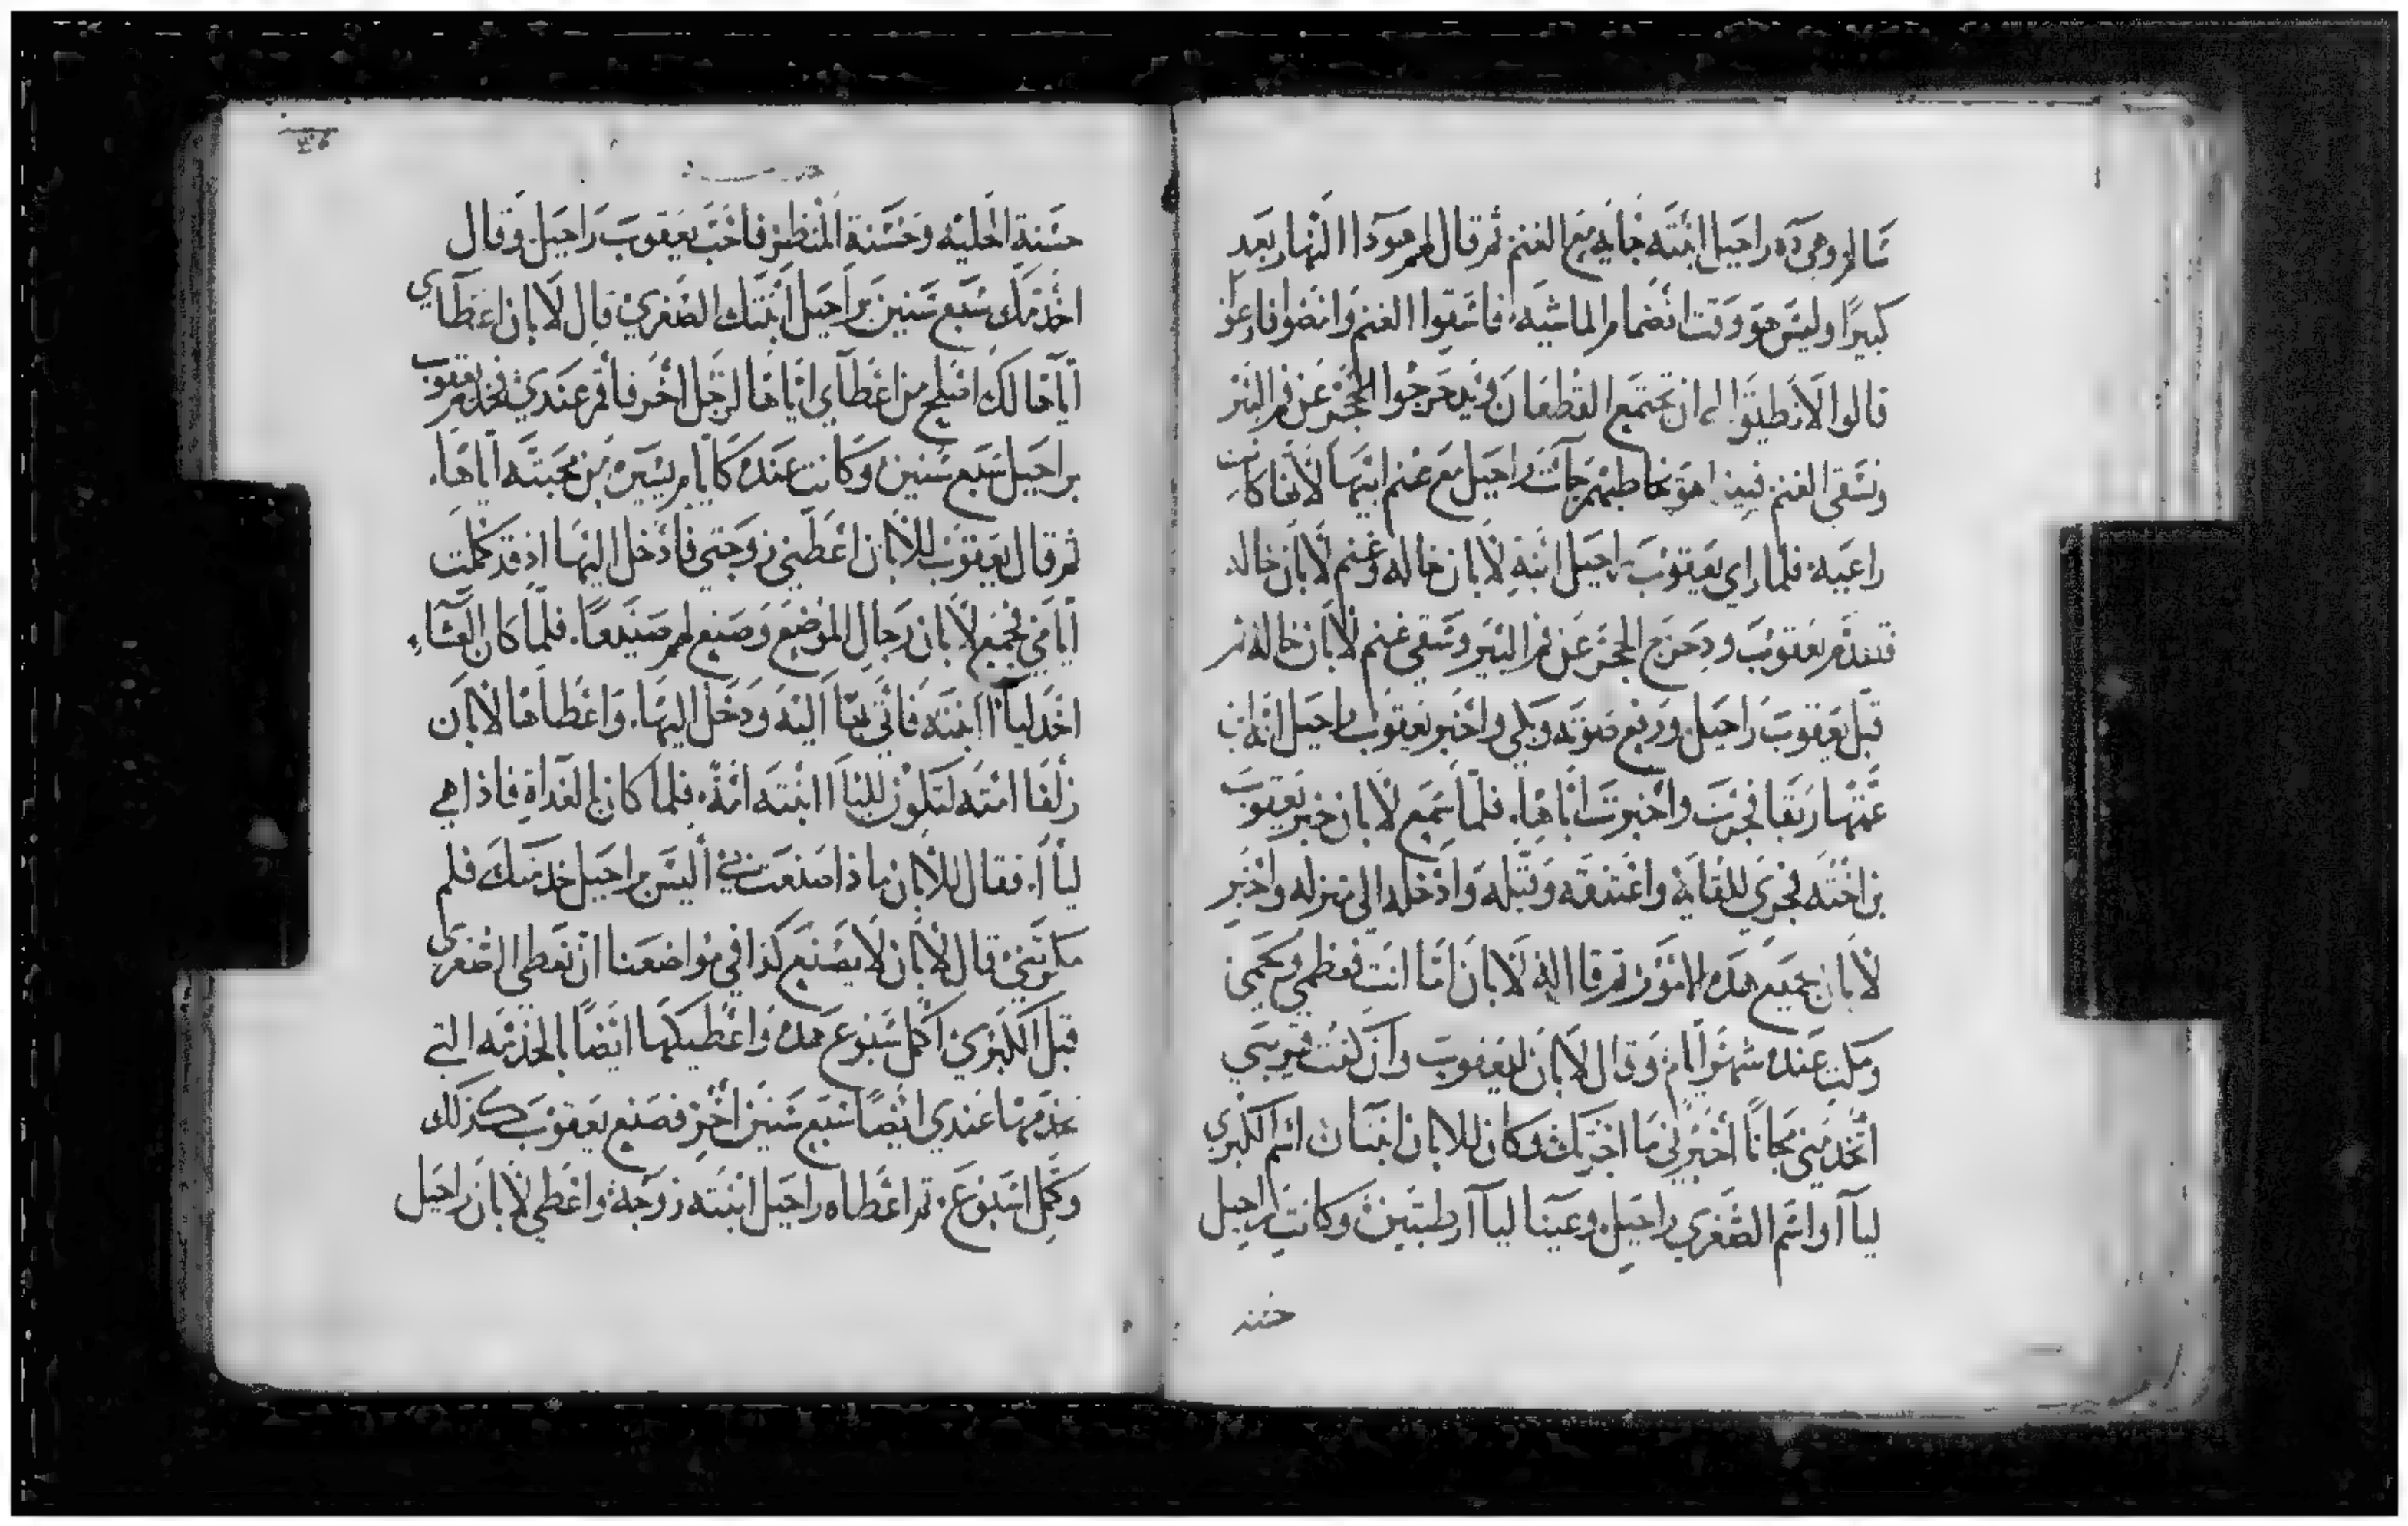 سالم وهي ده راحيل ابنته جايه مع الغنم ثم قال لهم هوذا النهار بعد
كبيرا وليس هو وقت انضمام الماشيه فاسقوا الغنم وامضوا فارعوا
قالوا لا نطيق الى ان تجتمع القطعان ويدحرجوا الحجر عن فم البير
ونسقي الغنم فبينا هو يخاطبهم جات راحيل مع غنم ابيها لانها كانت
راعيه فلما راي يعقوب راحيل ابنة لابان خاله وغنم لابان خاله
فتقدم يعقوب ودحرج الحجر عن فم البير وسقي غنم لابان خاله ثم
قبل يعقوب راحيل ورفع صوته وبكي واخبر يعقوب راحيل انه ابن
عمتها ربقا فجرت واخبرت اباها فلما سمع لابان خبر يعقوب
بن اخته فجري للقايه واعتنقه وقبله وادخله الي منزله واخبر
لابان بجميع هذه الامور ثم قال له لابان اما انت فعظمي ولحمي
ومكث عنده شهر ايام وقال لابان ليعقوب وان كنت قريبي
اتخدمني مجانا اخبرني ما اجرتك وكان للابان ابنتان اسم الكبري
ليآا واسم الصغري راحيل وعينا ليآا رطبتين وكانت راحيل
حسنه
حسنة الحليه وحسنة المنظر فاحب يعقوب راحيل وقال
اخدمك سبع سنين براحيل ابنتك الصغري قال لابان اعطآاي
اياها لك اصلح من اعطآاي اياها لرجل اخر فاقم عندي فخدم يعقوب
براحيل سبع سنين وكانت عنده كايام يسيره من محبته اياها
ثم قال يعقوب للابان اعطني زوجتي فادخل اليها اذ قد كملت
ايامي فجمع لابان رجال الموضع وصنع لهم صنيعا فلما كان العشاء
اخذ ليآا ابنته فاتي بها اليه ودخل اليها واعطاها لابان
زلفا امته لتكون لليآا ابنته امة فلما كان بالغداة فاذا هي
ليآا فقال للابان ماذا صنعت بي أليس براحيل خدمتك فلم
مكرتني قال لابان لا يصنع كذا في مواضعنا ان نعطي الصغري
قبل الكبري اكمل سبوع هذه واعطيكها ايضا بالخدمه التي
تخدمها عندي ايضا سبع سنين اخر فصنع يعقوب كذلك
وكمل اسبوع ثم اعطاه راحيل ابنته زوجة واعطي لابان راحيل